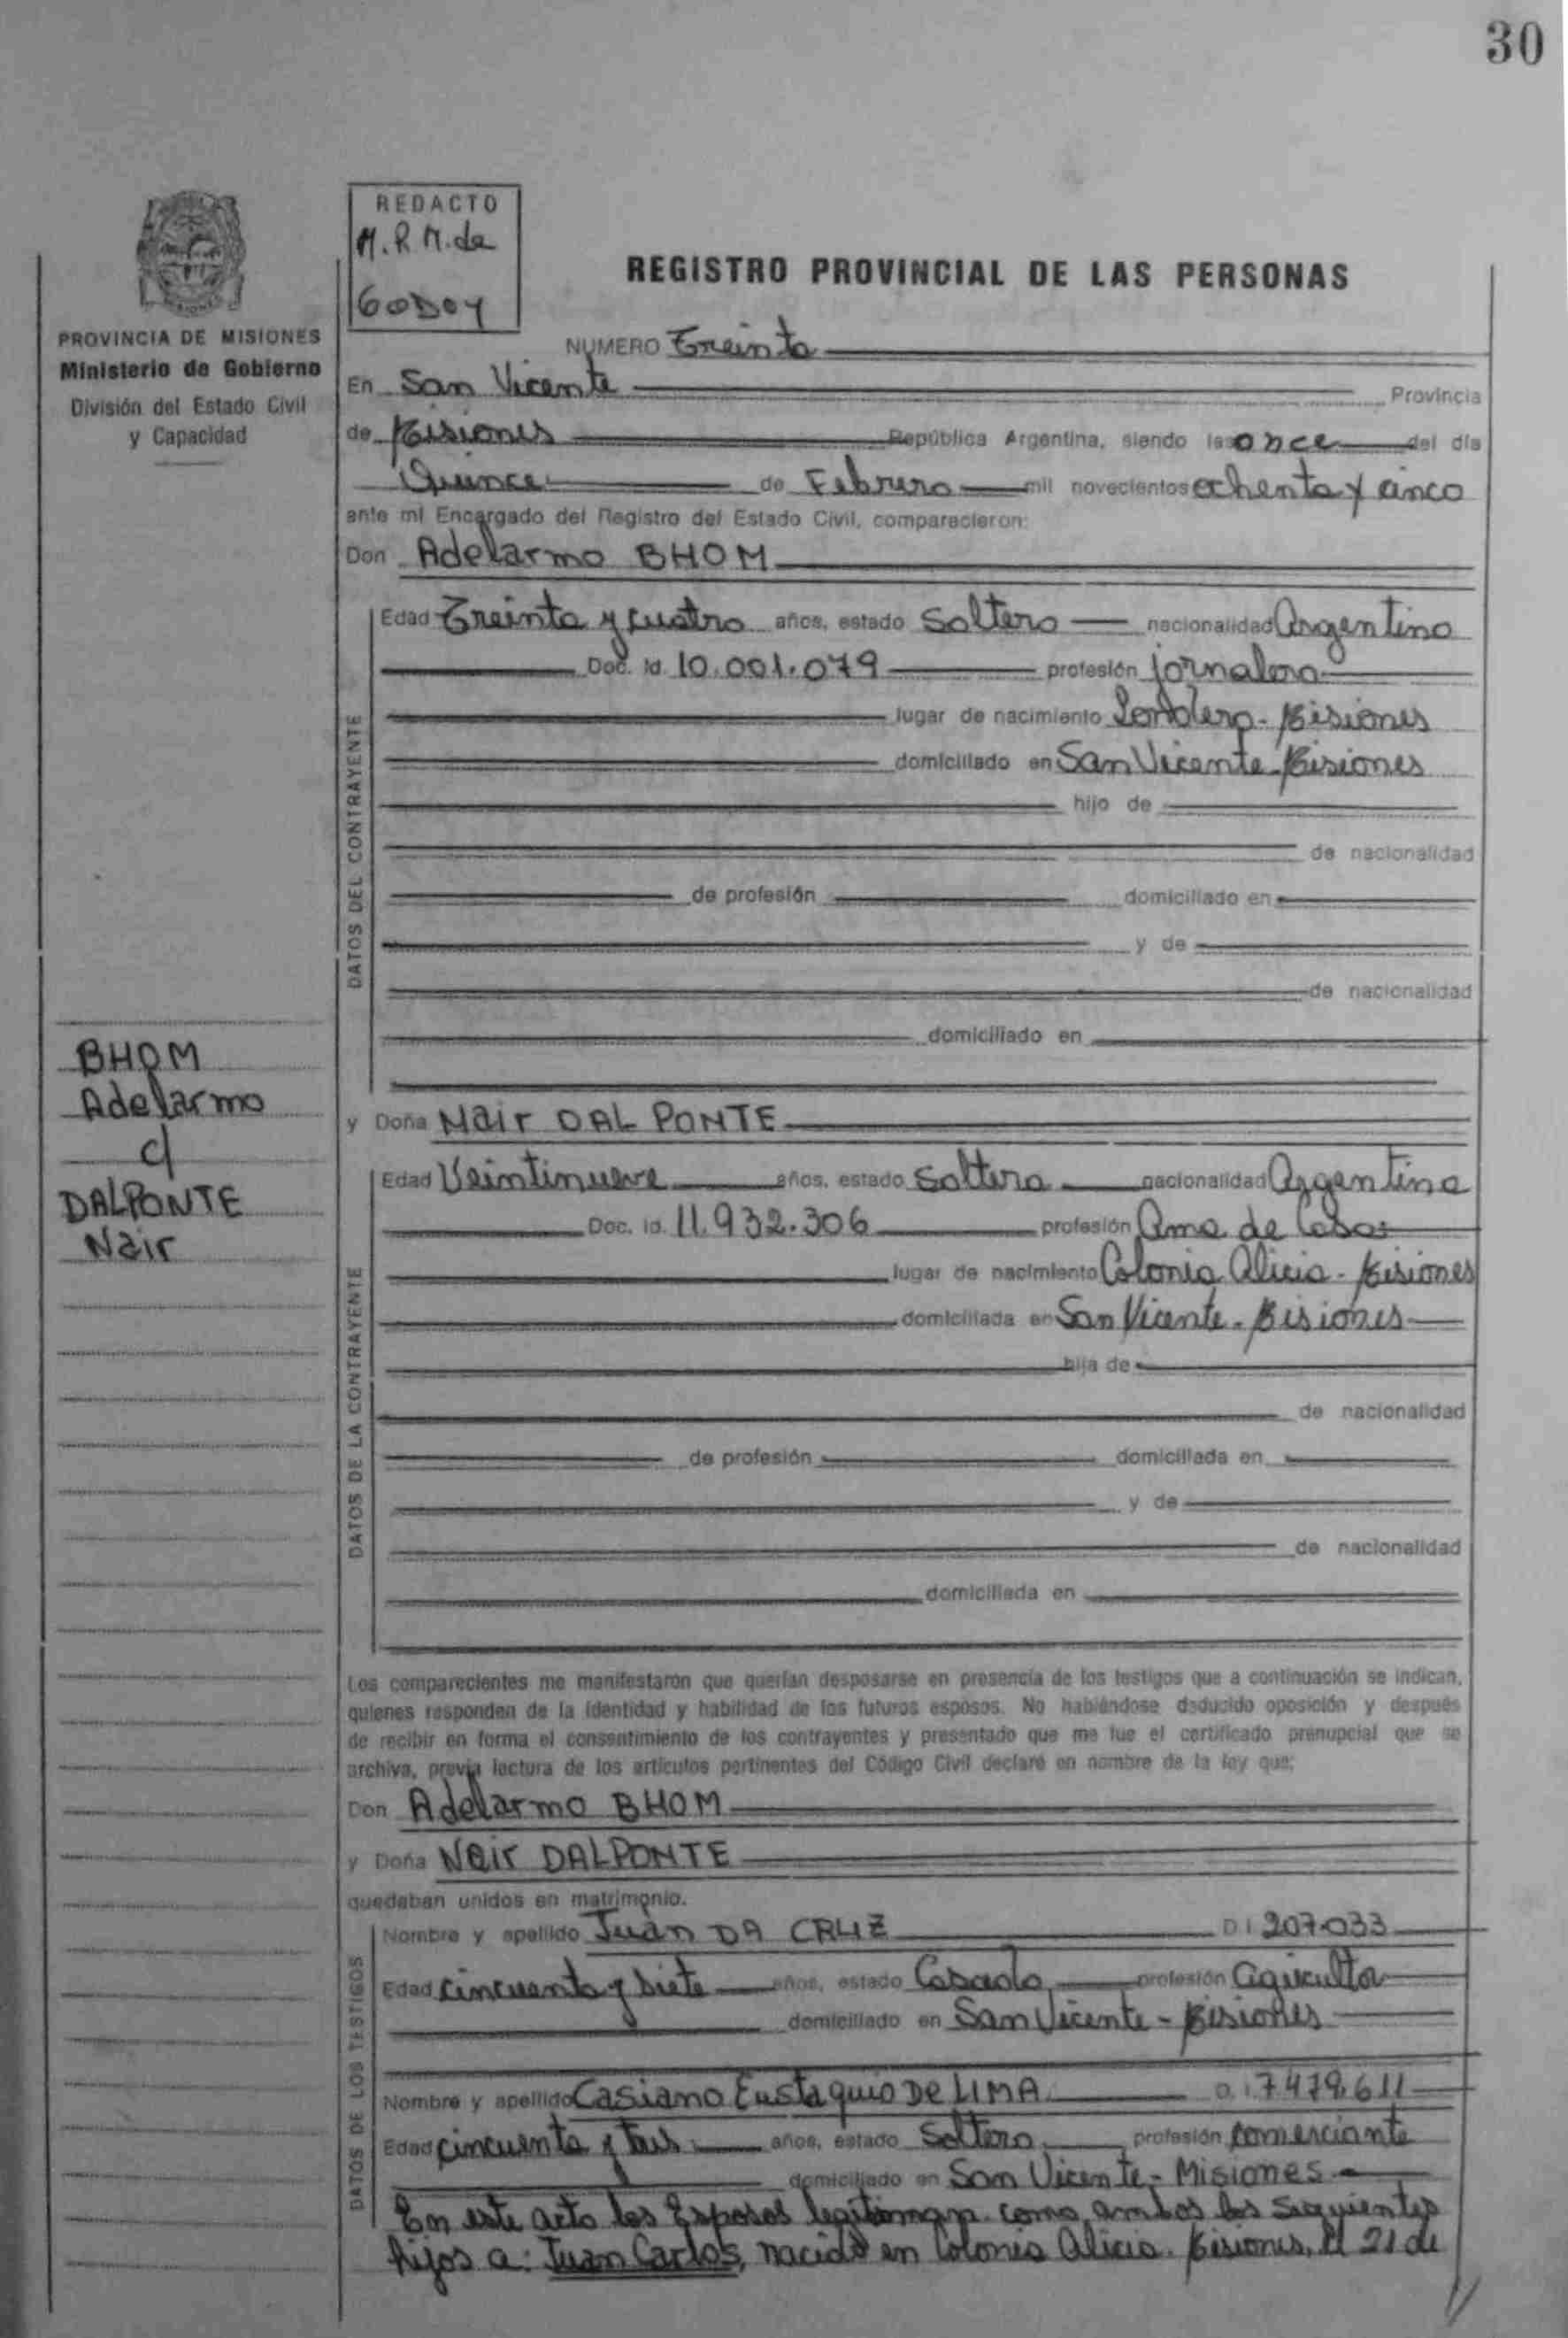 30
REDACTO
M.R.M. de
GODOY
REGISTRO PROVINCIAL DE LAS PERSONAS
PROVINCIA DE MISIONES
Ministerio de Gobierno
División del Estado Civil
y Capacidad
NUMERO Treinta
En San Vicente Provincia
de Misiones República Argentina, siendo las once del día
Quince de Febrero mil novecientos ochenta y cinco
ante mi Encargado del Registro del Estado Civil, comparecieron:
Don Adelarmo BHOM
DATOS DEL CONTRAYENTE
Edad Treinta y cuatro años, estado Soltero nacionalidad Argentino
Doc. Id. 10.001.079 profesión jornalero
lugar de nacimiento Misiones
domiciliado en San Vicente Misiones
hijo de
de nacionalidad
de profesión domiciliado en
y de
de nacionalidad
domiciliado en
BHOM
Adelarmo
c/
DALPONTE
Nair
y Doña Nair DAL PONTE
DATOS DE LA CONTRAYENTE
Edad Veintinueve años, estado Soltera nacionalidad Argentina
Doc. Id. 11.932.306 profesión Ama de Casa
lugar de nacimiento Colonia Alicia - Misiones
domiciliada en San Vicente - Misiones
hija de
de nacionalidad
de profesión domiciliada en
y de
de nacionalidad
domiciliada en
Los comparecientes me manifestaron que querían desposarse en presencia de los testigos que a continuación se indican,
quienes responden de la identidad y habilidad de los futuros esposos. No habiéndose deducido oposición y después
de recibir en forma el consentimiento de los contrayentes y presentado que me fue el certificado prenupcial que se
archiva, previa lectura de los artículos pertinentes del Código Civil declaré en nombre de la ley que:
Don Adelarmo BHOM
y Doña Nair DALPONTE
quedaban unidos en matrimonio.
DATOS DE LOS TESTIGOS
Nombre y apellido Juan DA CRUZ D I 207.033
Edad cincuenta y siete años, estado Casado profesión agricultor
domiciliado en San Vicente - Misiones
Nombre y apellido Casiano Eustaquio De LIMA D.I 7.479.611
Edad cincuenta y tres años, estado Soltero profesión comerciante
domiciliado en San Vicente - Misiones
En este acto los Esposos legitiman como ambos los siguientes
hijos a: Juan Carlos, nacido en Colonia Alicia. Misiones, el 21 de